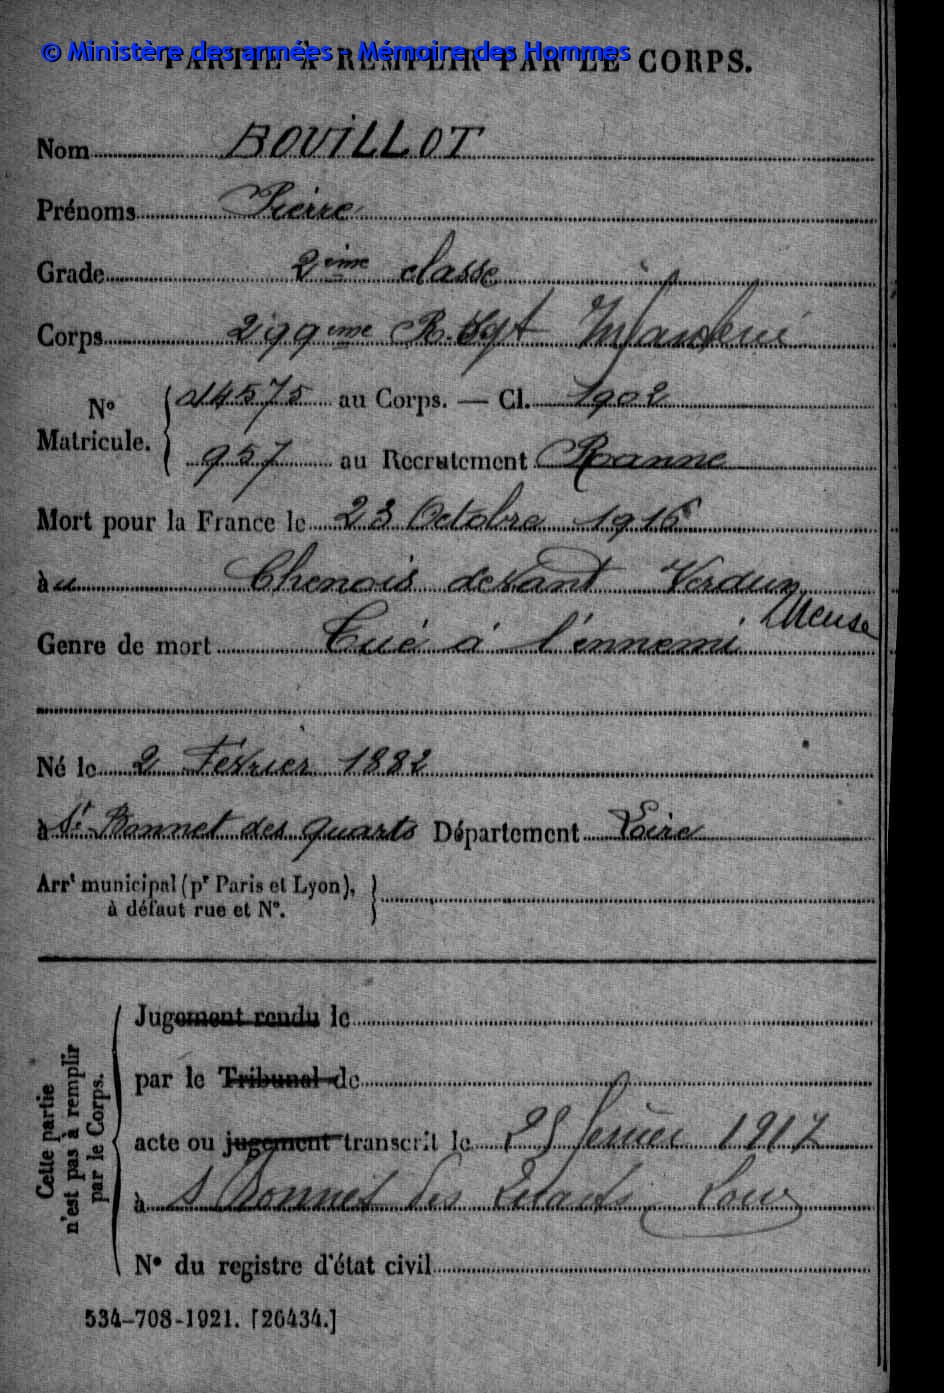 © Ministère des armées - Mémoire des Hommes
PARTIE À REMPLIR PAR LE CORPS.
Nom BOUILLOT
Prénoms Pierre
Grade 2ème classe
Corps 299ème R. Sgt Infanterie
No Matricule. 14575 au Corps. — Cl. 1902
957 au Recrutement Roanne
Mort pour la France le 23 Octobre 1916
àu Chenois devant Verdun
Meuse
Genre de mort Tué à l'ennemi
Né le 2 Février 1882
à St Bonnet des quarts Département Loire
Arrt municipal (pr Paris et Lyon),
à défaut rue et No.
Cette partie
n'est pas à remplir
par le Corps.
Jugement rendu le
par le Tribunal de
acte ou jugement transcrit le 25 février 1917
à St Bonnet des Quarts Loire
No du registre d'état civil
534-708-1921. [26434.]